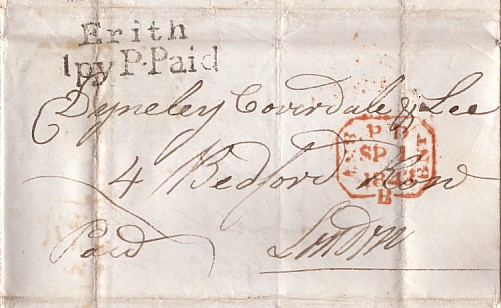 Erith
1py P.Paid
Dyneley Coverdale & Lee
4 Bedford Row
Paid London
PD
SP
184
B